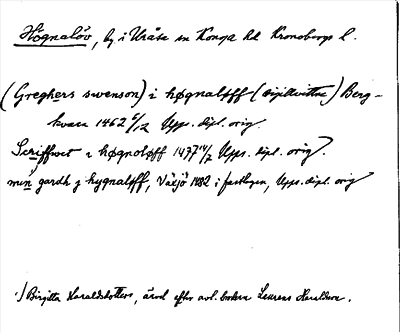 Högnalöv, by i Uråsa sn Konga hd Kronobergs l.
(Greghers swenson) i høgnaløff (sigillvittne) Berg-
kvara 1462 6/12 Upps. dipl. orig.
Scriffwet i høgnoløff 1477 14/2 Upps. dipl. orig.
min gardh j hygnaløff, Växjö 1482 i fastlagen, Upps. dipl. orig
1) Birgitta Haraldsdotters, ärvd efter avl. brodern Laurens Haraldsson.